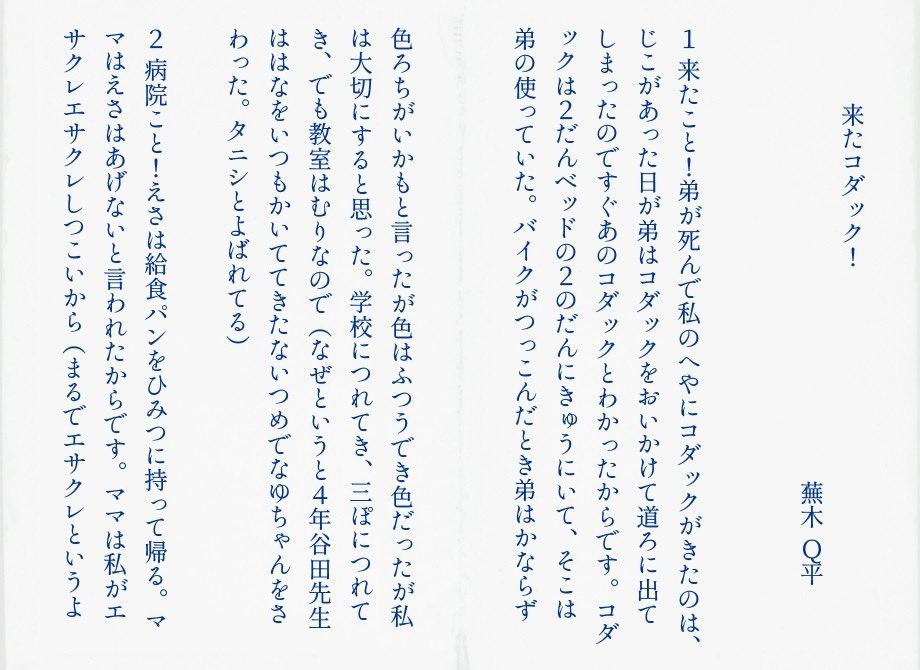 来たコダック！
蕪木 Q平
1 来たこと！弟が死んで私のへやにコダックがきたのは、
じこがあった日が弟はコダックをおいかけて道ろに出て
しまったのですぐあのコダックとわかったからです。コダ
ックは2だんベッドの2のだんにきゅうにいて、そこは
弟の使っていた。バイクがつっこんだとき弟はかならず
色ろちがいかもと言ったが色はふつうでき色だったが私
は大切にすると思った。学校につれてき、三ぽにつれて
き、でも教室はむりなので（なぜというと4年谷田先生
ははなをいつもかいててきたないつめでなゆちゃんをさ
わった。タニシとよばれてる）
2 病院こと！えさは給食パンをひみつに持って帰る。マ
マはえさはあげないと言われたからです。ママは私がエ
サクレエサクレしつこいから（まるでエサクレというよ